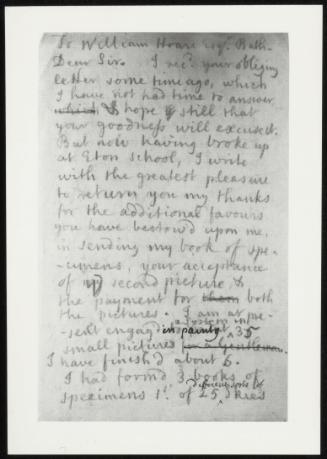 To William Hoare Esqr. Bath.
Dear Sir. I recd. your obliging
letter some time ago, which
I have not had time to answer
which I hope still that
your goodness will excuse it.
But now having broke up
at Eton school, I write
with the greatest pleasure
to return you my thanks
for the additional favours
you have bestow'd upon me,
in sending my book of spe-
-cimens, your acceptance
of my second picture, &
the payment for them both
the pictures. I am at pre-
-sent engag'd in painting 35
small pictures for a Gentleman.
I have finish'd about 6.
I had form'd 3 books of
different sorts of
specimens 1st. of 25 skies